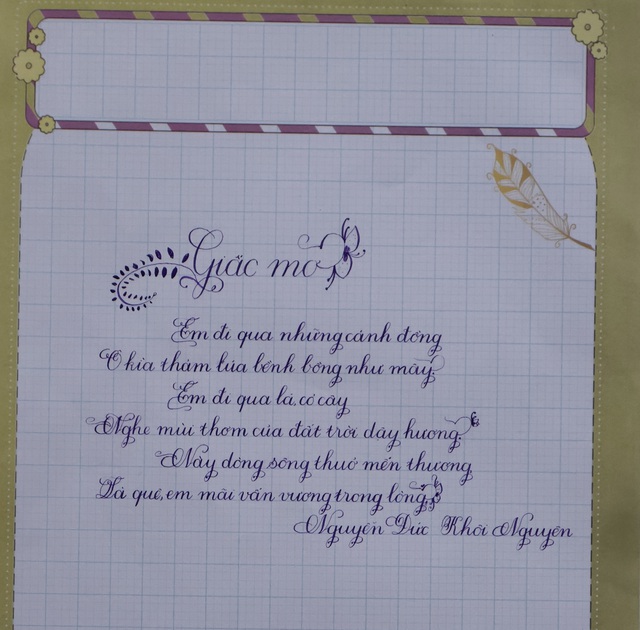 Giấc mơ
Em đi qua những cánh đồng
Ô kìa thảm lúa bềnh bồng như mây
Em đi qua lá, cỏ cây
Nghe mùi thơm của đất trời dậy hương
Này dòng sông thuở mến thương
Là quê, em mãi vấn vương trong lòng
Nguyễn Đức Khôi Nguyên